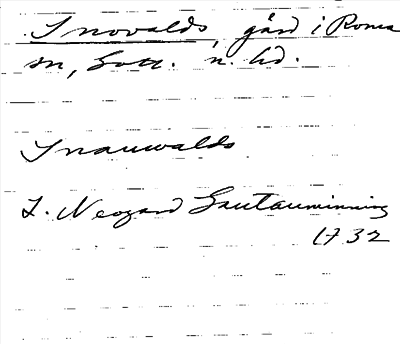 Snovalds, gård i Roma
sn, Gotl. n. hd.
Snauwalds
L. Neogard Gautauminning
1732